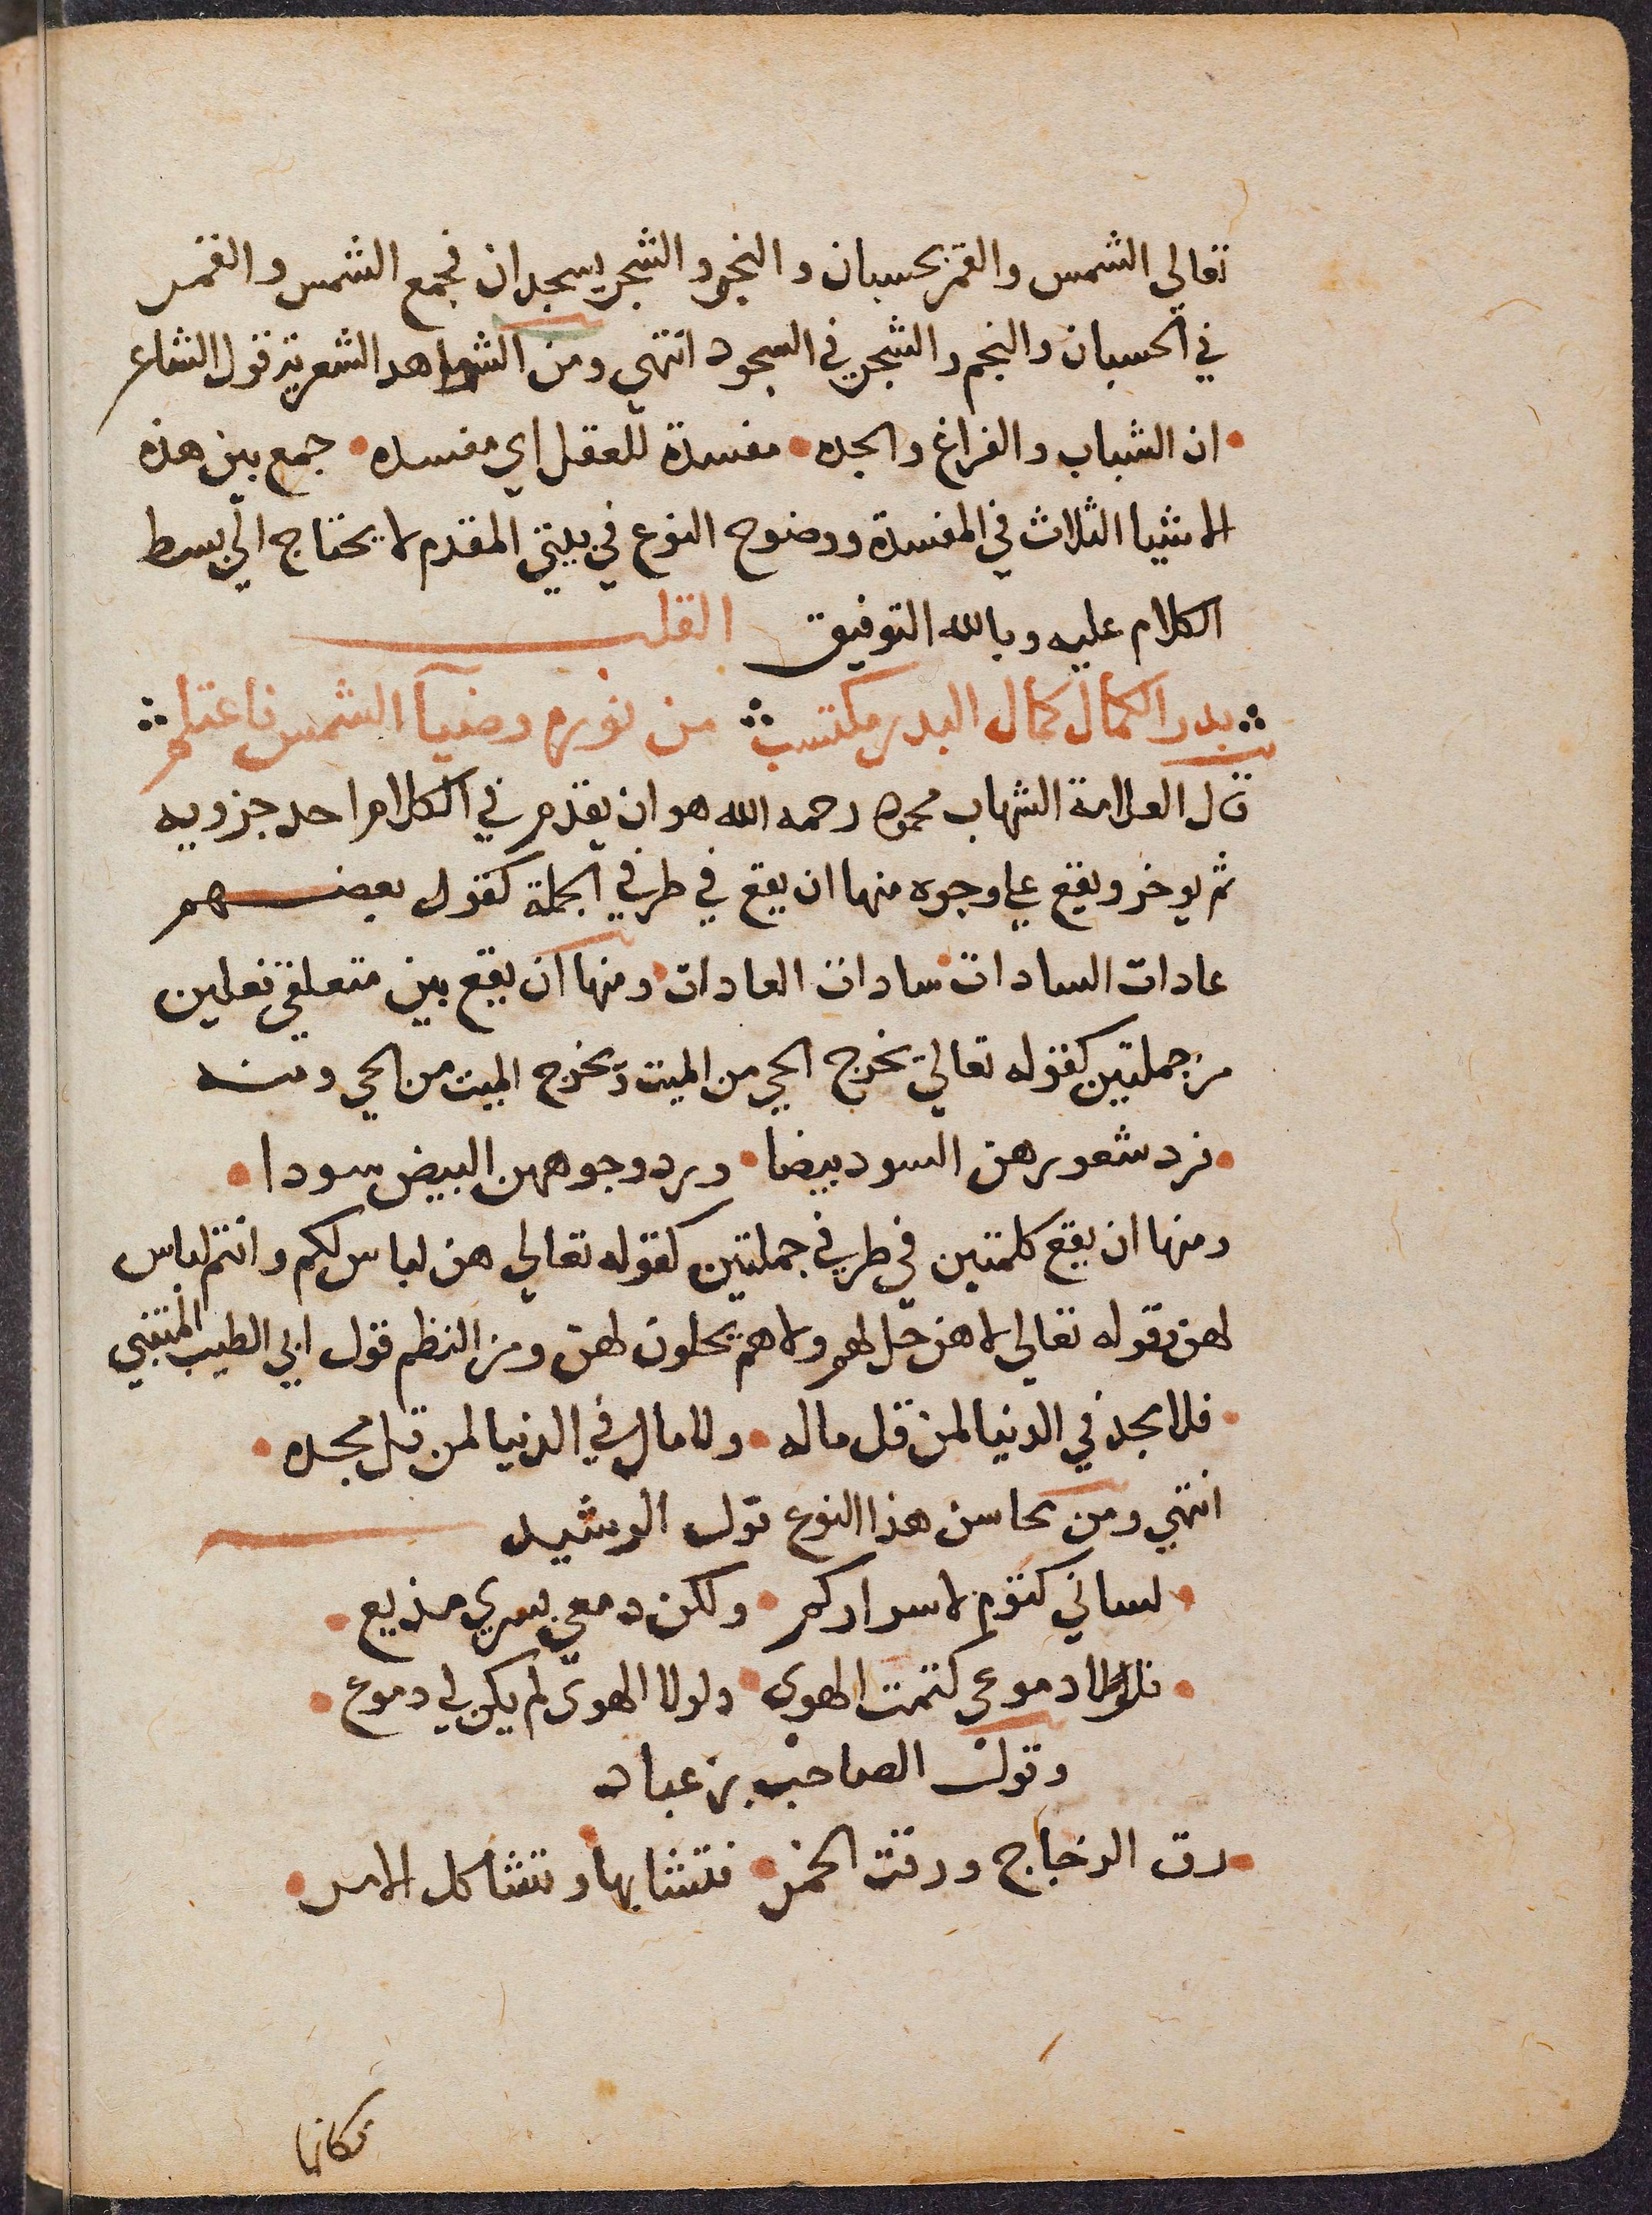 تعالي الشمس والقمر بحسبان والنجم والشجر يسجدان فجمع الشمس والقمر
في الحسبان والنجم والشجر في السجود انتهي ومن الشواهد الشعرية قول الشاعر
ان الشباب والفراغ والجده مفسدة للعقل اي مفسده جمع بين هذه
الاشيا الثلاث في المفسدة ووضوح النوع في بيتي المقدم لا يحتاج الي بسط
الكلام عليه وبالله التوفيق القلب
بدر الكمال كمال البدر مكتسب من نوره وضيآ الشمس فاعتلم
قال العلامة الشهاب محمود رحمه الله هو ان يقدم في الكلام احد جزويه
ثم يوخر ويقع علي وجوه منها ان يقع في طرفي الجملة كقول بعضهم
عادات السادات سادات العادات ومنها ان يقع بين متعلقي فعلين
من جملتين كقوله تعالي يخرج الحي من الميت ويخرج الميت من الحي ومنه
فرد شعورهن السود بيضا ورد وجوههن البيض سودا
ومنها ان يقع كلمتين في طرفي جملتين كقوله تعالي هن لباس لكم وانتم لباس
لهن وقوله تعالي لا هن حل لهم ولا هم يحلون لهن ومن النظم قول ابي الطيب المتنبي
فلا مجد في الدنيا لمن قل ماله ولا مال في الدنيا لمن قل مجده
انتهي ومن محاسن هذا النوع قول الرشيد
لساني كتوم لاسراركم ولكن دمعي بسري مذيع
فلولا دموعي كتمت الهوى ولولا الهوى لم يكن لي دموع
وقول الصاحب بن عباد
رق الزجاج ورقت الخمر فتشابها وتشاكل الامر
فكانما